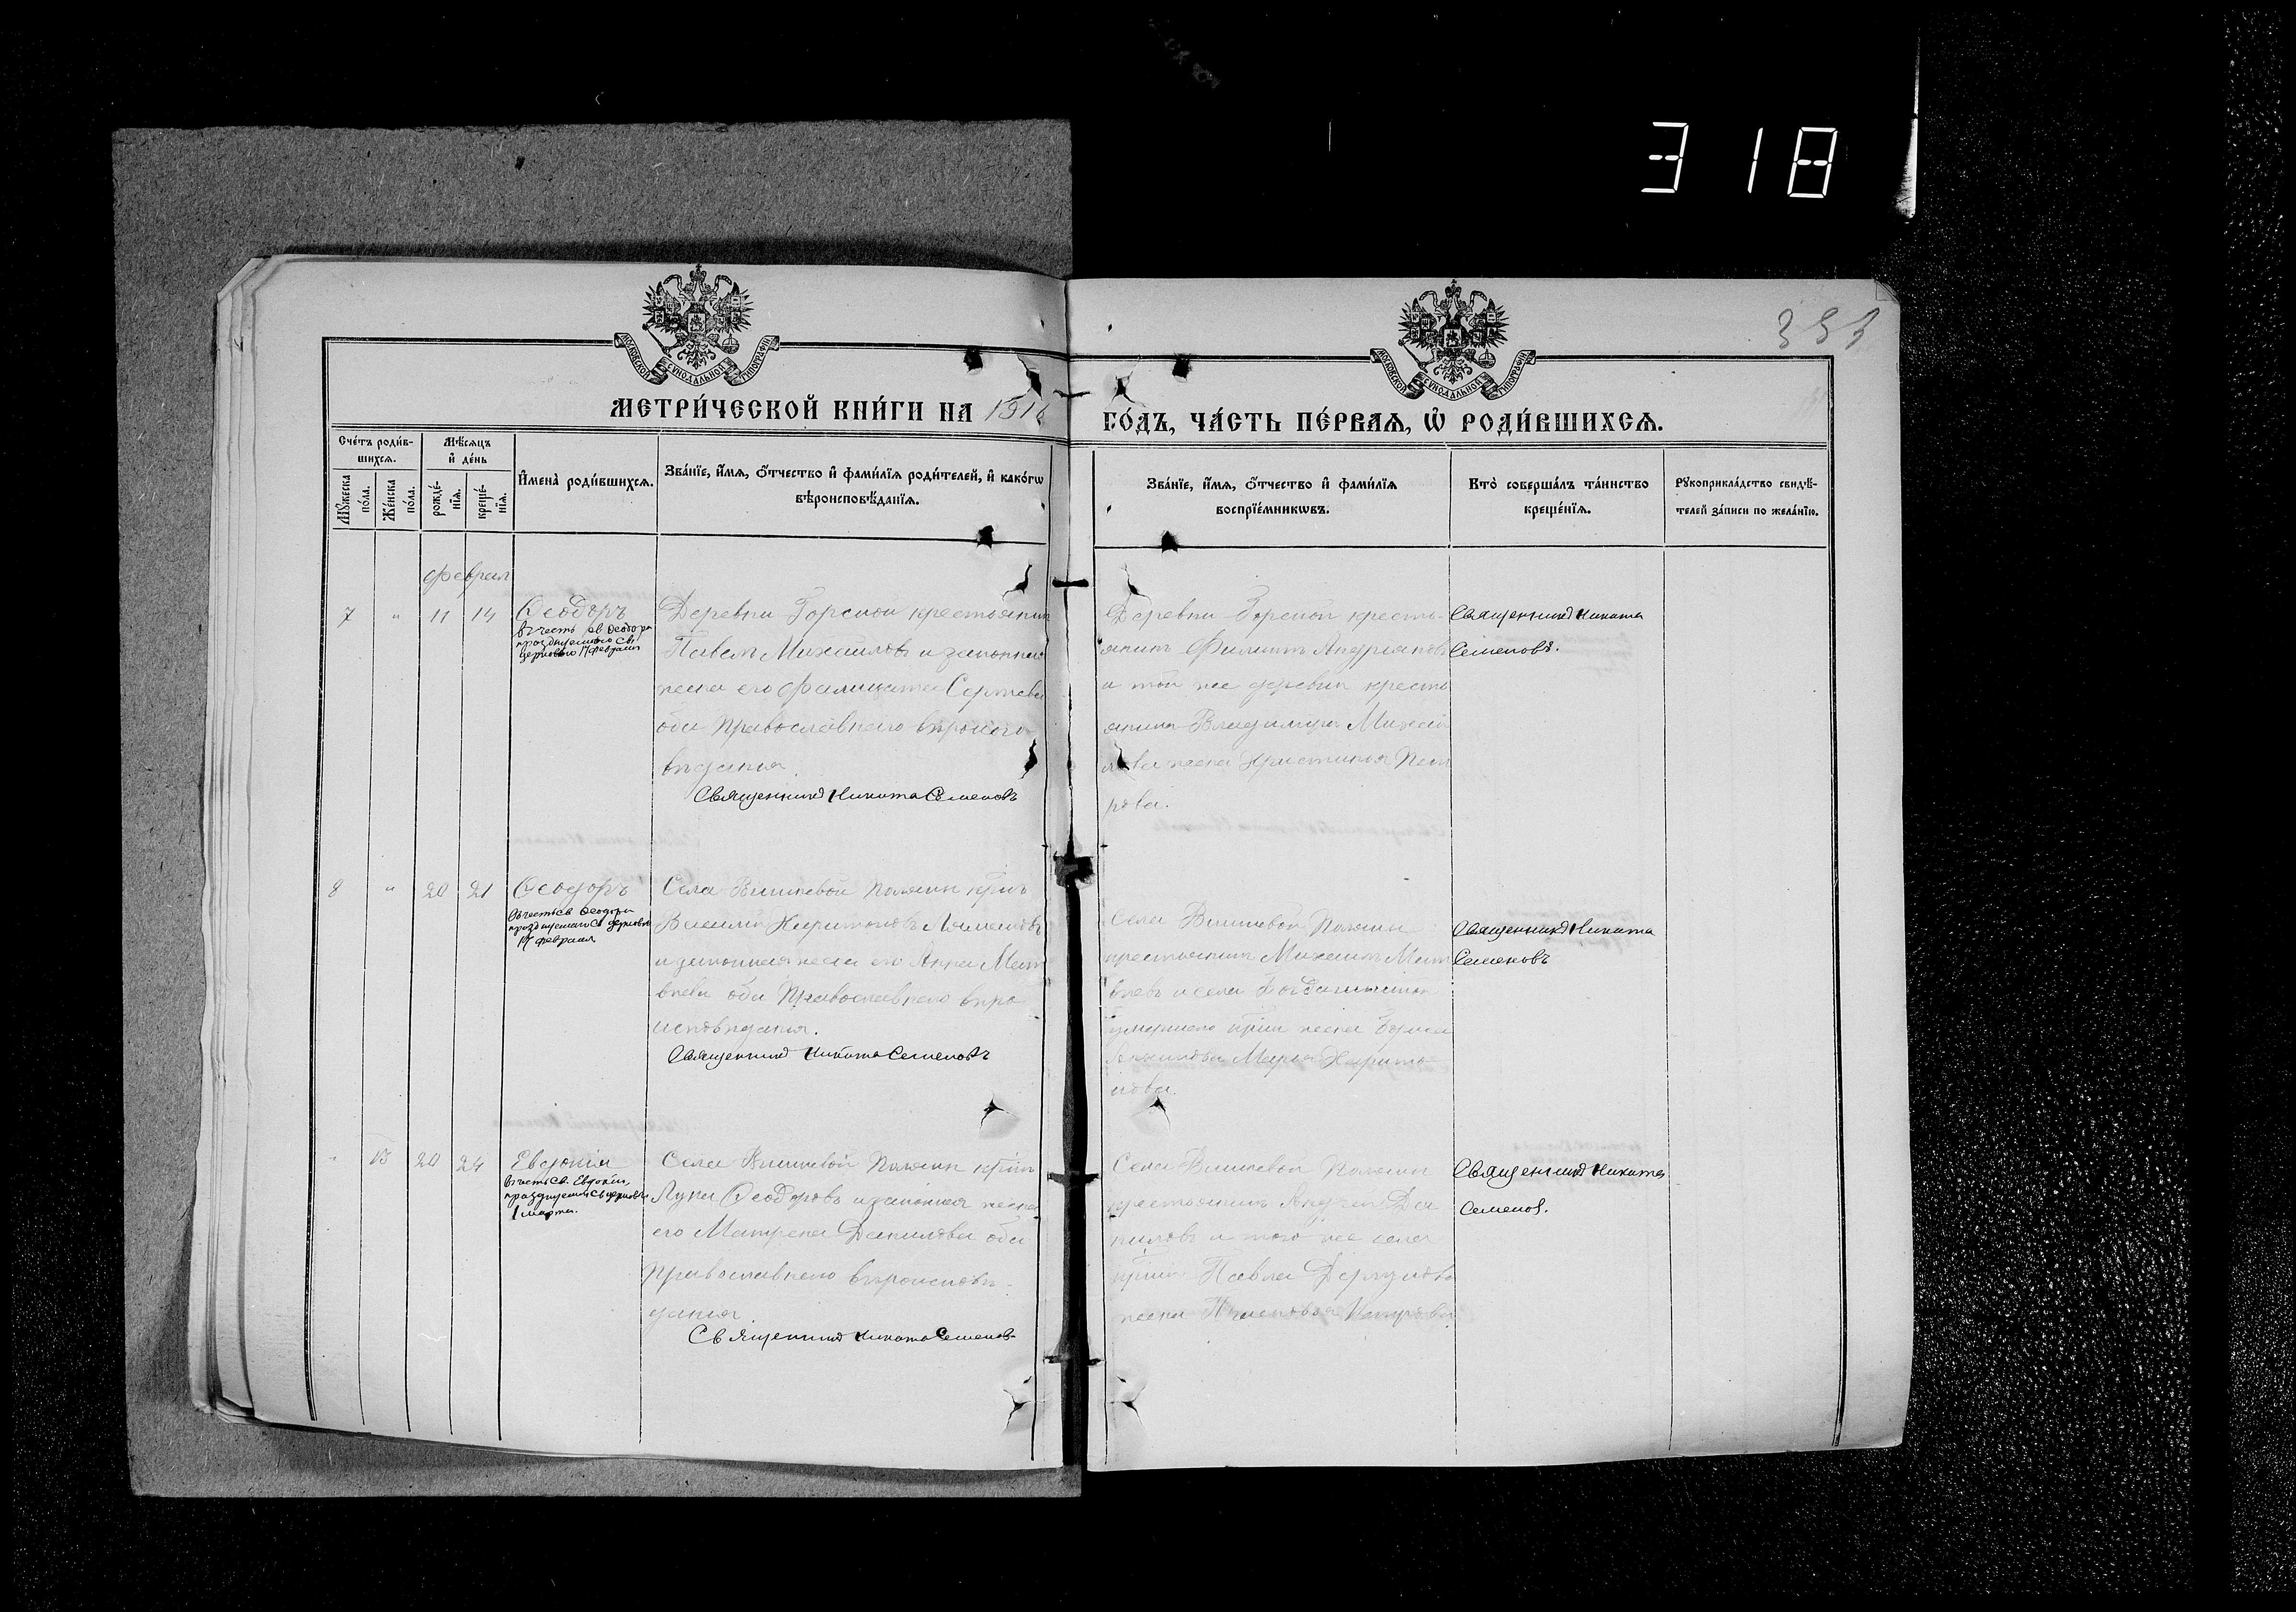 318
353
МОСКОВСКОЙ СѴНОДАЛЬНОЙ ТИПОГРАФІИ
МОСКОВСКОЙ СѴНОДАЛЬНОЙ ТИПОГРАФІИ
МЕТРИ́ЧЕСКОЙ КНИ́ГИ НА 1916
ГО́ДЪ, ЧА́СТЬ ПЕ́РВАѦ, Ѽ РОДИ́ВШИХСѦ.
Сче́тъ роди́в-
шихсѧ.
Мѣ́сѧцъ
и҆ де́нь
Мꙋ́жеска
по́ла.
Же́нска
по́ла.
рожде́-
нїѧ.
креще́-
нїѧ.
И҆мена̀ роди́вшихсѧ.
Зва́нїе, и҆́мѧ, ѻ҆́тчество и҆ фами́лїѧ роди́телей, и҆ како́гѡ
вѣроисповѣ́данїѧ.
Зва́нїе, и҆́мѧ, ѻ҆́тчество и҆ фами́лїѧ
воспрїе́мникѡвъ.
Кто̀ соверша́лъ та́инство
креще́нїѧ.
Рꙋкоприкла́дство свидѣ́-
телей за́писи по жела́нїю.
Феврал
7 " 11 14
Ѳеодоръ
въ честь св Ѳеодора
празднуемаго св.
церковью 17 февраля
Деревни Горской крестьянинъ
Павелъ Михаиловъ и законная
жена его Фелицата Сергѣева
оба Православнаго вѣроиспо
вѣданія
Священникъ Никита Семеновъ
Деревни Горской кресть-
янинъ Филиппъ Андріановъ
и той же деревни кресть
янина Владимира Михаи
лова жена Христинья Пет
рова.
Священникъ Никита
Семеновъ.
8 " 20 21
Ѳеодоръ
Въ честь св Ѳеодора
празднуемаго св церковью
17 февраля
Села Вишневой Поляны кр̃нъ
Василій Харитоновъ
и законная жена его Анна Мат
вѣева оба Православнаго вѣро
исповѣданія.
Священникъ Никита Семеновъ
Села Вишневой Поляны
крестьянинъ Михаилъ Мат
вѣевъ и села
умершаго кр̃на жена
Марья Харито
нова.
Священникъ Никита
Семеновъ
" 13 20 24
Евдокія
въ честь св. Евдокіи,
празднуемой св церковью
1 марта.
Села Вишневой Поляны кр̃нъ
Лука Ѳеодоровъ и законная жена
его Матрена Данилова оба
Православнаго вѣроисповѣ-
данія
Священникъ Никита Семенов
Села Вишневой Поляны
крестьянинъ Андрей Да
ниловъ и того же села
кр̃на Павла
жена Петрова
Священникъ Никита
Семенов.